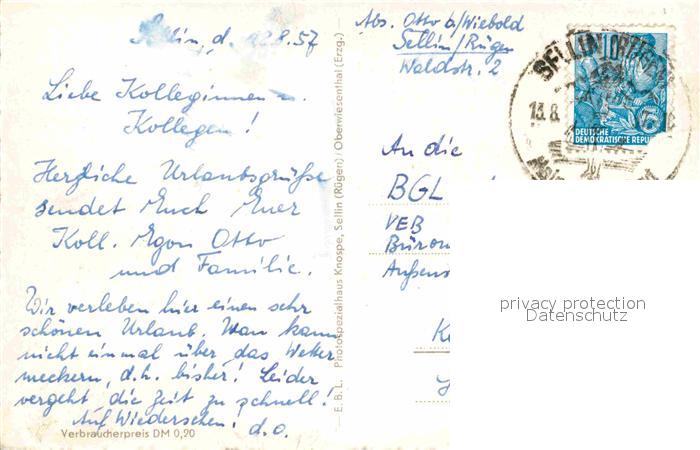 Sellin, d. 12.8.57
Liebe Kolleginnen u.
Kollegen!
Herzliche Urlaubsgrüße
sendet Euch Euer
Koll. Egon Otto
und Familie.
Wir verleben hier einen sehr
schönen Urlaub. Man kann
nicht einmal über das Wetter
meckern, d.h. bisher! Leider
vergeht die Zeit zu schnell!
Auf Wiedersehen!
d.o.
Verbraucherpreis DM 0,20
E.B.L. Photospezialhaus Knospe, Sellin (Rügen) / Oberwiesenthal (Erzg.)
Abs. Otto b/Wiebold
Sellin/Rügen
Waldstr. 2
SELLIN
13.8.
DEUTSCHE
DEMOKRATISCHE REPUBLIK
An die
BGL
VEB
Büro
Außens
privacy protection
Datenschutz